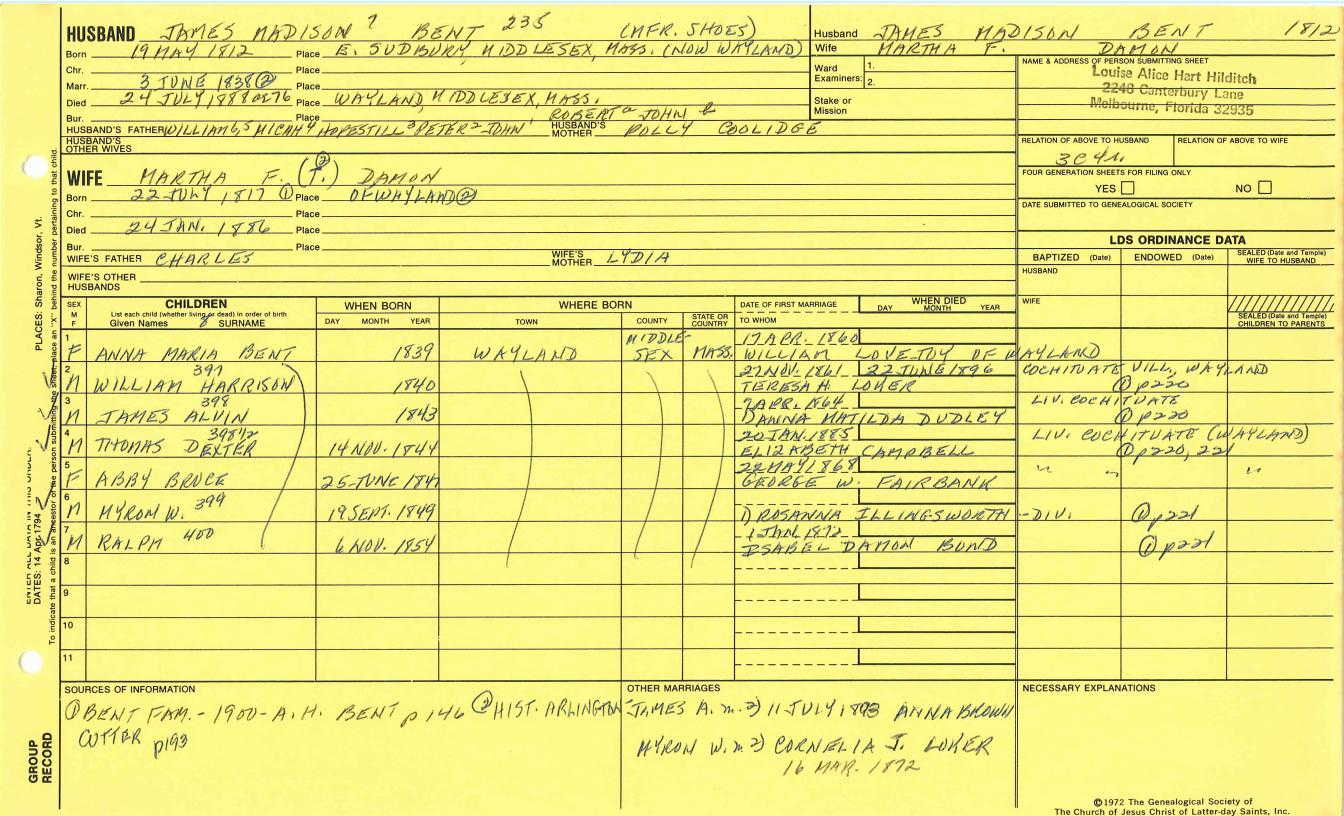 HUSBAND JAMES MADISON 7 BENT 235 (MFR. SHOES)
Born 19 MAY 1812 Place E. SUDBURY, MIDDLESEX, MASS. (NOW WAYLAND)
Chr. Place
Marr. 3 JUNE 1838 ② Place
Died 24 JULY, 1888 ae 76 Place WAYLAND, MIDDLESEX, MASS.
Bur. Place ROBERT a JOHN b
HUSBAND'S FATHER WILLIAM 6, 5 MICAH 4 HOPESTILL 3 PETER 2 JOHN 1 HUSBAND'S MOTHER POLLY COOLIDGE
HUSBAND'S OTHER WIVES
Husband JAMES MADISON BENT 1812
Wife MARTHA F. DAMON
Ward Examiners: 1.
2.
Stake or Mission
NAME & ADDRESS OF PERSON SUBMITTING SHEET
Louise Alice Hart Hilditch
2240 Canterbury Lane
Melbourne, Florida 32935
RELATION OF ABOVE TO HUSBAND RELATION OF ABOVE TO WIFE
3C4R.
FOUR GENERATION SHEETS FOR FILING ONLY
YES NO
DATE SUBMITTED TO GENEALOGICAL SOCIETY
WIFE MARTHA F. (T.) ② DAMON
Born 22 JULY, 1817 ① Place OF WAYLAND ②
Chr. Place
Died 24 JAN. 1886 Place
Bur. Place
WIFE'S FATHER CHARLES WIFE'S MOTHER LYDIA
WIFE'S OTHER HUSBANDS
LDS ORDINANCE DATA
BAPTIZED (Date) ENDOWED (Date) SEALED (Date and Temple) WIFE TO HUSBAND
HUSBAND
WIFE
SEALED (Date and Temple) CHILDREN TO PARENTS
SEX M F CHILDREN WHEN BORN WHERE BORN DATE OF FIRST MARRIAGE WHEN DIED
List each child (whether living or dead) in order of birth
Given Names 8 SURNAME DAY MONTH YEAR TOWN COUNTY STATE OR COUNTRY TO WHOM DAY MONTH YEAR
1 F ANNA MARIA BENT 1839 WAYLAND MIDDLE-SEX MASS. 17 APR. 1860
WILLIAM LOVEJOY OF WAYLAND
2 M WILLIAM HARRISON 397 1840 27 NOV. 1861 22 JUNE 1896 COCHITUATE VILL, WAYLAND
TERESA H. LOKER ① p220
3 M JAMES ALVIN 398 1843 7 APR. 1864 LIV. COCHITUATE
1) ANNA MATILDA DUDLEY ① p220
4 M THOMAS DEXTER 398 1/2 14 NOV. 1844 20 JAN. 1885 LIV. COCHITUATE (WAYLAND)
ELIZABETH CAMPBELL ① p220, 221
5 F ABBY BRUCE 25 JUNE 1847 22 MAY 1868 " " "
GEORGE W. FAIRBANK
6 M MYRON W. 399 19 SEPT. 1849 1) ROSANNA ILLINGSWORTH - DIV. ① p221
7 M RALPH 400 6 NOV. 1854 1 JAN. 1872
ISABEL DAMON BOND ① p221
8
9
10
11
SOURCES OF INFORMATION
① BENT FAM. - 1900 - A. H. BENT p 146 ② HIST. ARLINGTON
CUTTER p193
OTHER MARRIAGES
JAMES A. m. 2) 11 JULY 1893 ANNA BROWN
MYRON W. m 2) CORNELIA J. LOKER
16 MAR. 1872
NECESSARY EXPLANATIONS
©1972 The Genealogical Society of
The Church of Jesus Christ of Latter-day Saints, Inc.
GROUP RECORD
ENTER ALL DATA IN THIS ORDER:
DATES: 14 Apr 1794 PLACES: Sharon, Windsor, Vt.
To indicate that a child is an ancestor of the person submitting the sheet, place an "X" behind the number pertaining to that child.